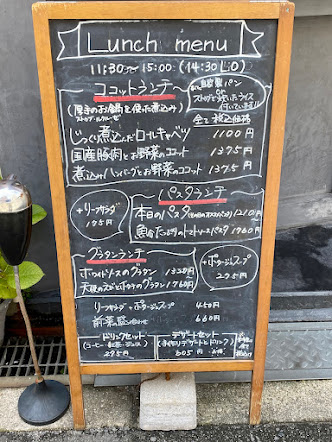 Lunch menu
11:30〜15:00 (14:30 L.O)
ココットランチ
(厚手のお鍋を使った煮込み)
ストウブ・ル・クルーゼ
自家製パン
or
ストウブで炊いたライス
付いています!!
全て税込価格
じっくり煮込んだロールキャベツ 1100円
国産豚肉とお野菜のココット 1375円
煮込みハンバーグとお野菜のココット 1375円
パスタランチ
+リーフサラダ
195円
本日のパスタ 1210円
魚介たっぷりのトマトソースパスタ 1760円
グラタンランチ
ホワイトソースのグラタン 1320円
天使のエビとホタテのグラタン 1760円
+ポタージュスープ
295円
リーフサラダ+ポタージュスープ 450円
前菜盛り合わせ 660円
ドリンクセット
(コーヒー・紅茶・ジュース)
295円
デザートセット
(手作りデザートとドリンク)
605円